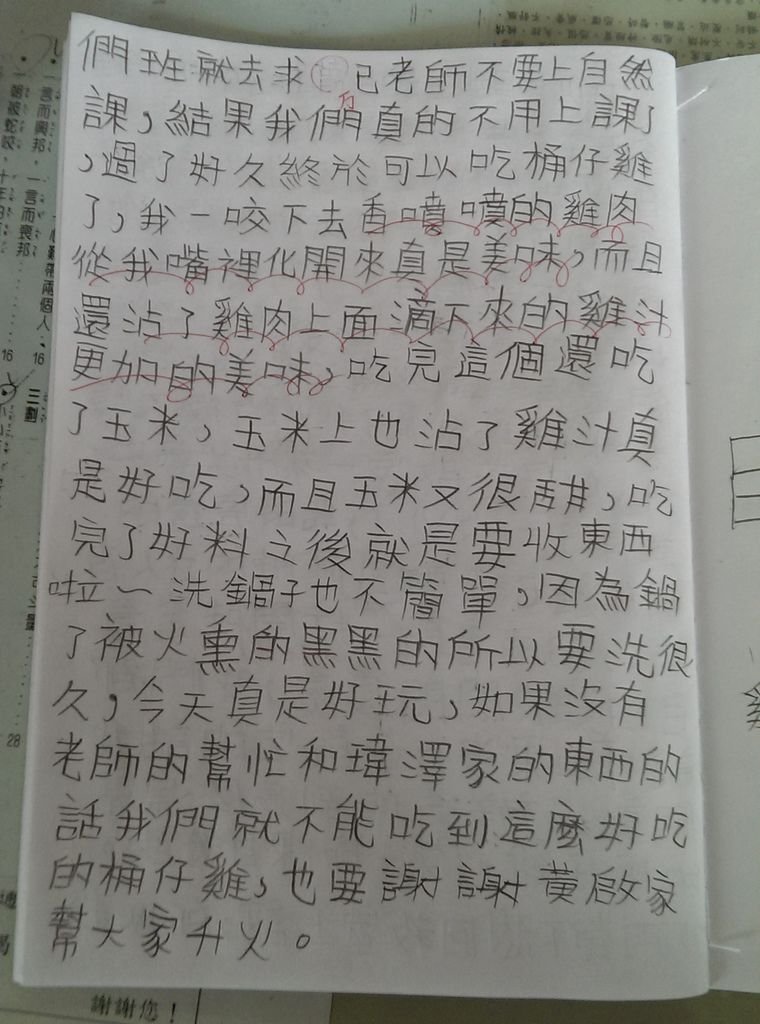 們班就去求自己老師不要上自然
課,結果我們真的不用上課了
,過了好久終於可以吃桶仔雞
了,我一咬下去香噴噴的雞肉
從我嘴裡化開來真是美味,而且
還沾了雞肉上面滴下來的雞汁
更加的美味,吃完這個還吃
了玉米,玉米上也沾了雞汁真
是好吃,而且玉米又很甜,吃
完了好料之後就是要收東西
啦~洗鍋子也不簡單,因為鍋
了被火熏的黑黑的所以要洗很
久,今天真是好玩,如果沒有
老師的幫忙和瑋澤家的東西的
話我們就不能吃到這麼好吃
的桶仔雞,也要謝謝黃啟家
幫大家升火。
一言而興邦,一言而喪邦
16
16
三劃
28
謝謝您!